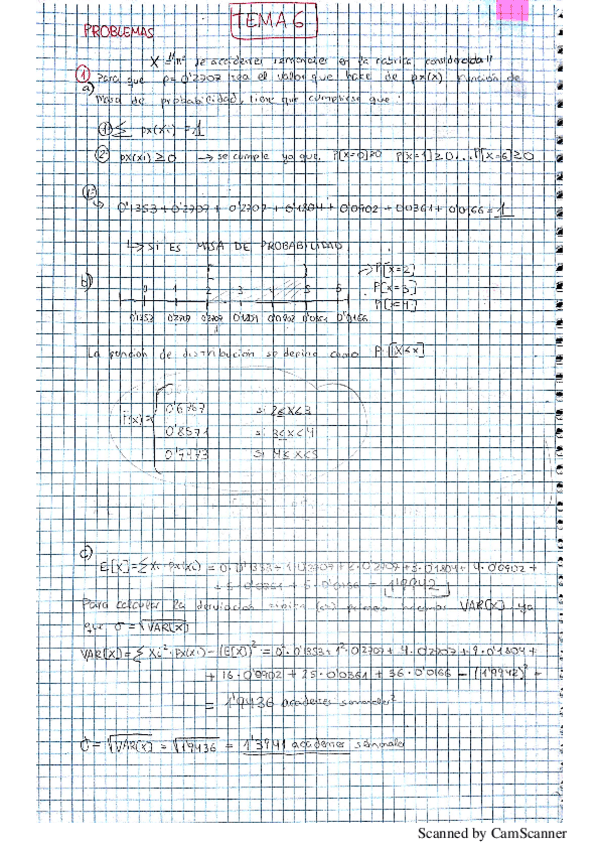 TEMA 6
PROBLEMAS
X = "nº de accidentes semanales en la fábrica considerada"
① Para que p=0'2707 sea el valor que hace de px(x) función de
a) masa de probabilidad, tiene que cumplirse que:
① Σ px(xi) = 1
② px(xi) ≥ 0 → se cumple ya que P[X=0]≥0 P[X=1]≥0...P[X=6]≥0
①
→ 0'1353+0'2707+0'2707+0'1804+0'0902+0'0361+0'0166=1
↳ SI ES MASA DE PROBABILIDAD.
b) → P[X=2]
0 1 2 3 4 5 6 P[X=3]
P[X=4]
0'1353 0'2707 0'2707 0'1804 0'0902 0'0361 0'0166
La función de distribución se define como P[X≤x]
F(x)=
0'6767 si 2≤X<3
0'8571 si 3≤X<4
0'9473 si 4≤X<5
c)
E[X]=Σxi·px(xi) = 0·0'1353+1·0'2707+2·0'2707+3·0'1804+4·0'0902+
+5·0'0361+6·0'0166 = 1'9942
Para calcular la desviación primero hacemos VAR(X) ya
que σ=√VAR(X)
VAR(X)=Σ Xi²·px(xi)-(E[X])² = 0²·0'1353+1²·0'2707+4·0'2707+9·0'1804+
+16·0'0902+25·0'0361+36·0'0166-(1'9942)² =
= 1'9436 accidentes semanales²
σ=√VAR(X) = √1'9436 = 1'3941 accidentes semanales
Scanned by CamScanner